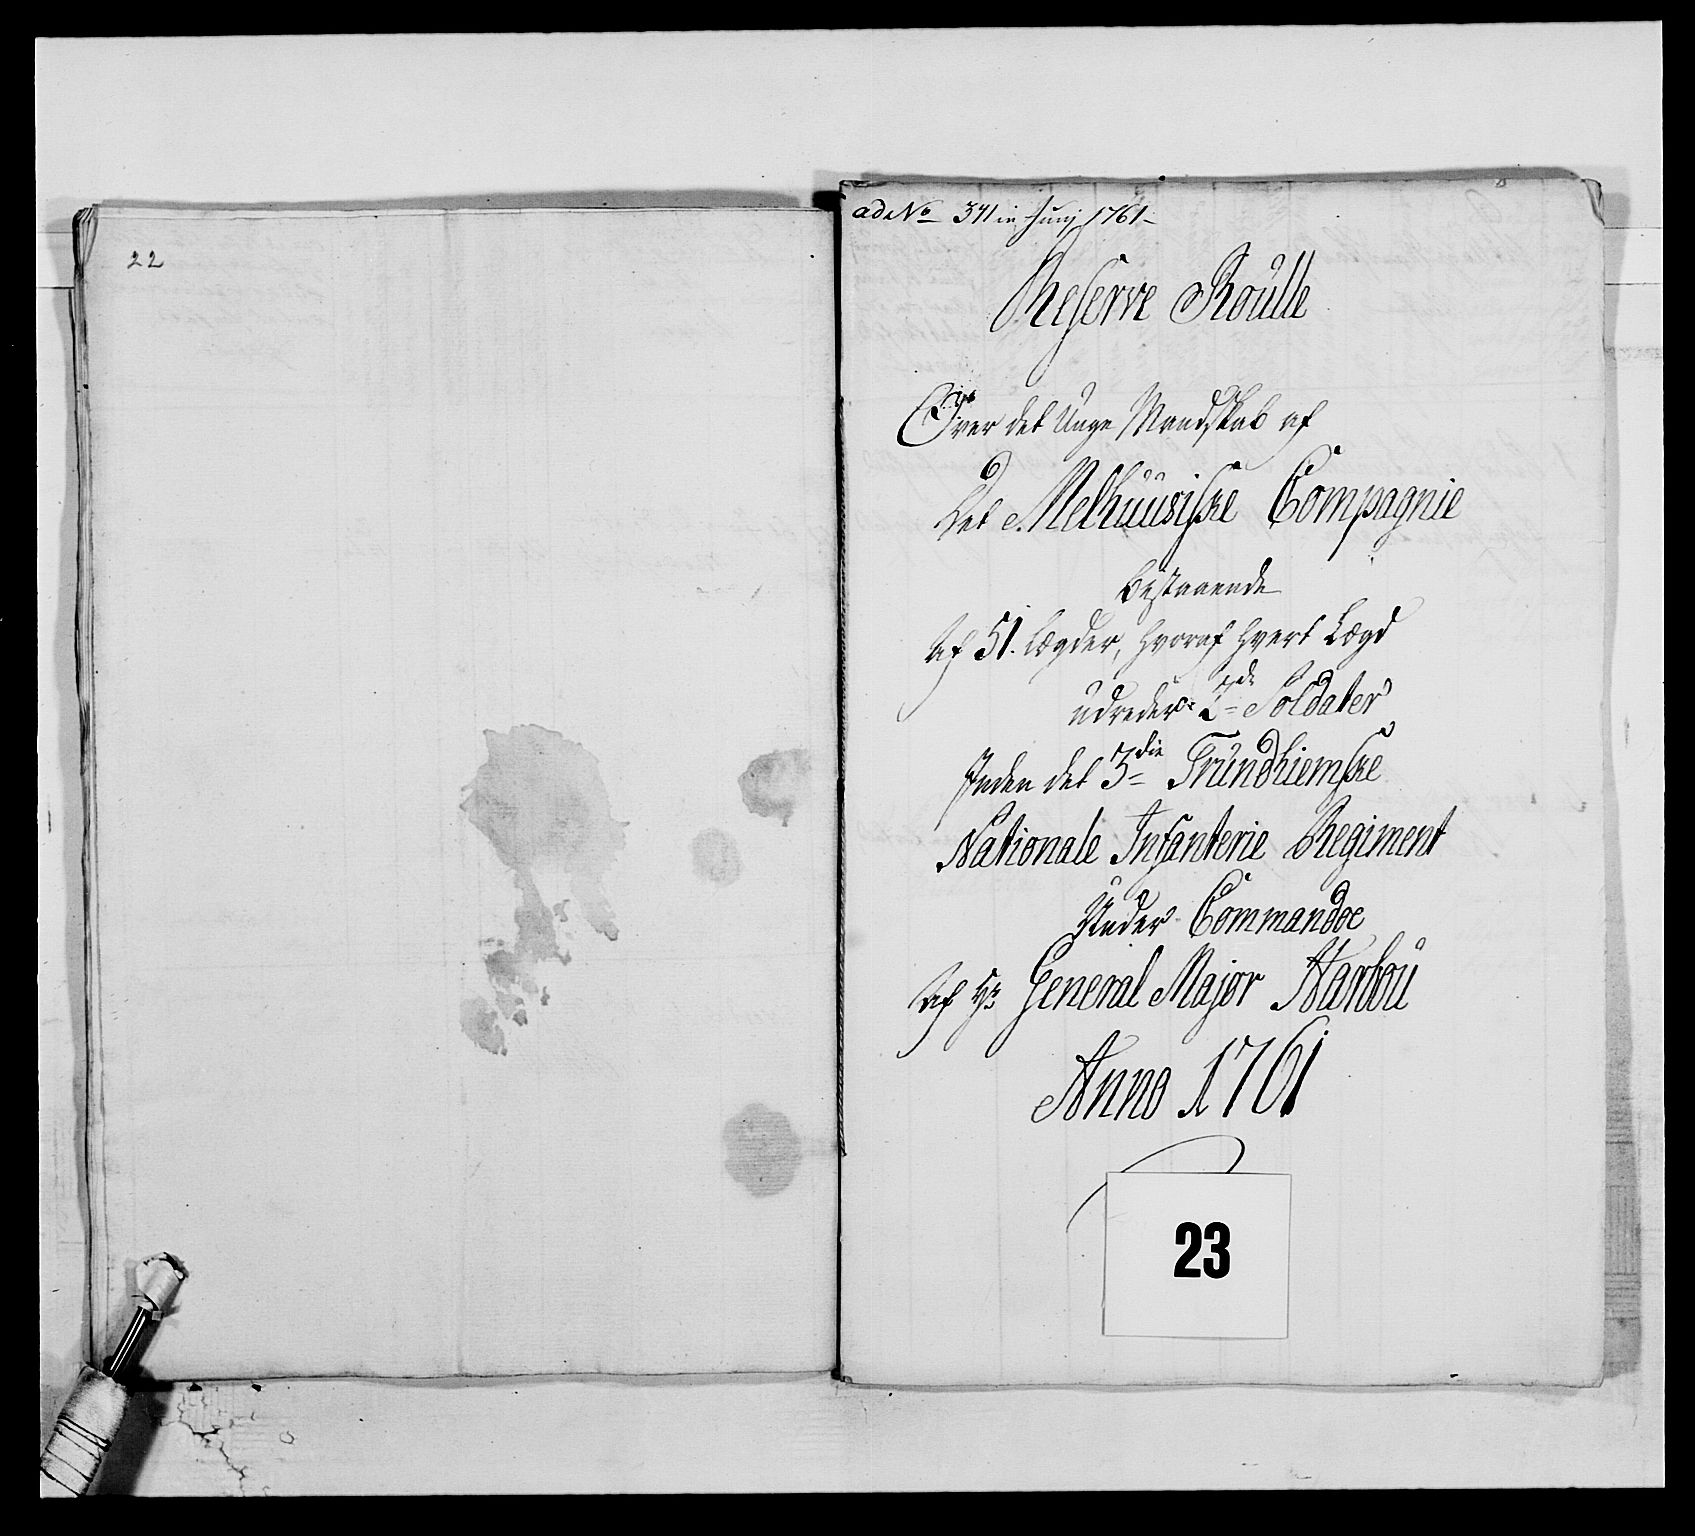 22
ad No 341 in Junj 1761
Reserve Roulle
Over det Unge Mandskab af
Det Melhuusiske Compagnie
bestaaende
af 51. Lægder, hvoraf hvert Lægd
udreder 2de Soldater
Inden det 3die Trundhiemske
Nationale Infanterie Regiment
Under Commandoe
af Hr General Major Harbou
Anno 1761
23